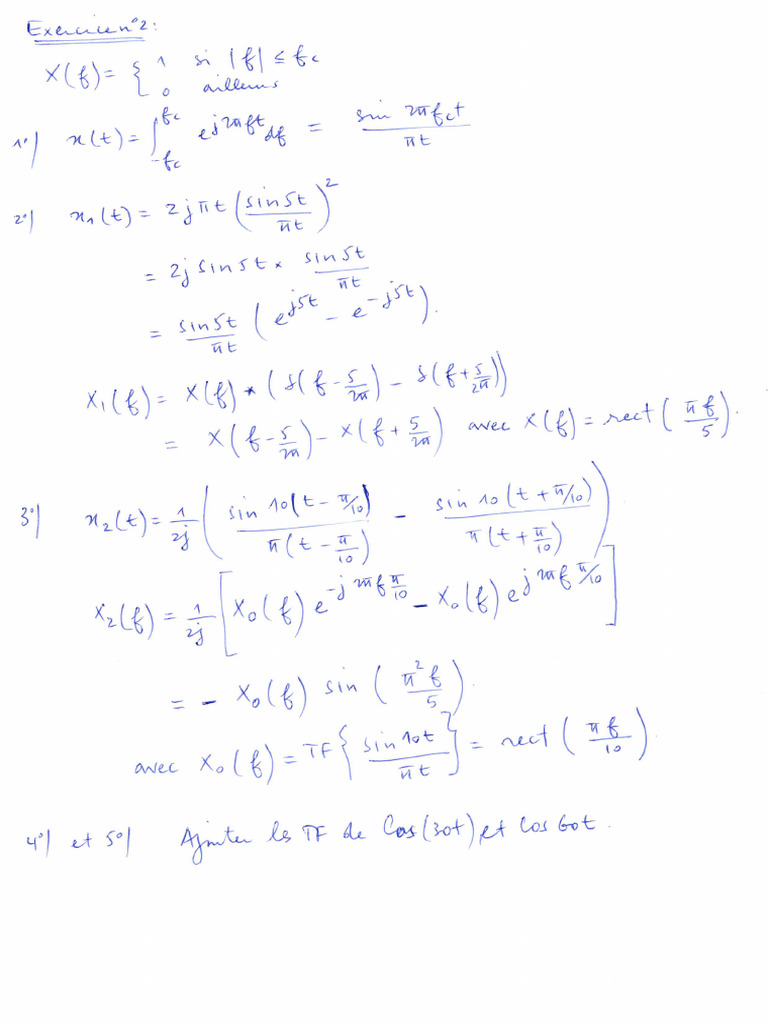 Exercice n°2:
X(f) = { 1 si |f| ≤ fc
0 ailleurs
1°/ x(t) = ∫_{-fc}^{fc} e^{j2πft} df = sin 2πfct / πt
2°/ x₁(t) = 2jπt (sin5t / πt)²
= 2j sin5t × sin5t / πt
= sin5t / πt (e^{j5t} − e^{−j5t}).
X₁(f) = X(f) * (δ(f − 5/2π) − δ(f + 5/2π))
= X(f − 5/2π) − X(f + 5/2π) avec X(f) = rect(πf / 5).
3°/ x₂(t) = 1/2j ( sin10(t − π/10) / π(t − π/10) − sin10(t + π/10) / π(t + π/10) )
X₂(f) = 1/2j [ X₀(f) e^{−j2πf π/10} − X₀(f) e^{j2πf π/10} ]
= − X₀(f) sin (π²f / 5).
avec X₀(f) = TF{ sin10t / πt } = rect(πf / 10).
4°/ et 5°/ Ajouter les TF de Cos(30t) et cos60t.